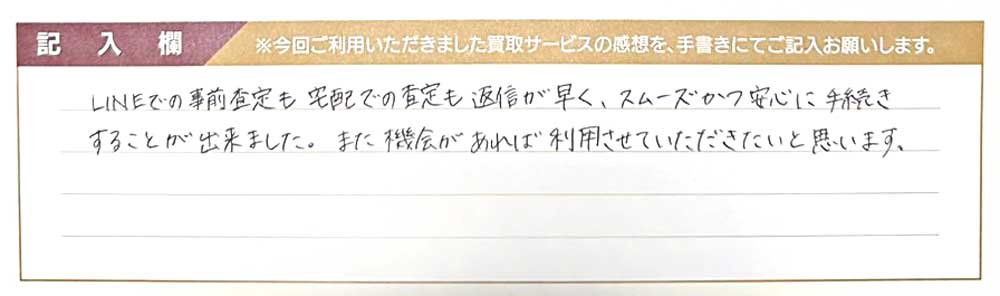 記入欄
※今回ご利用いただきました買取サービスの感想を、手書きにてご記入お願いします。
LINEでの事前査定も宅配での査定も返信が早く、スムーズかつ安心に手続き
することが出来ました。また機会があれば利用させていただきたいと思います。